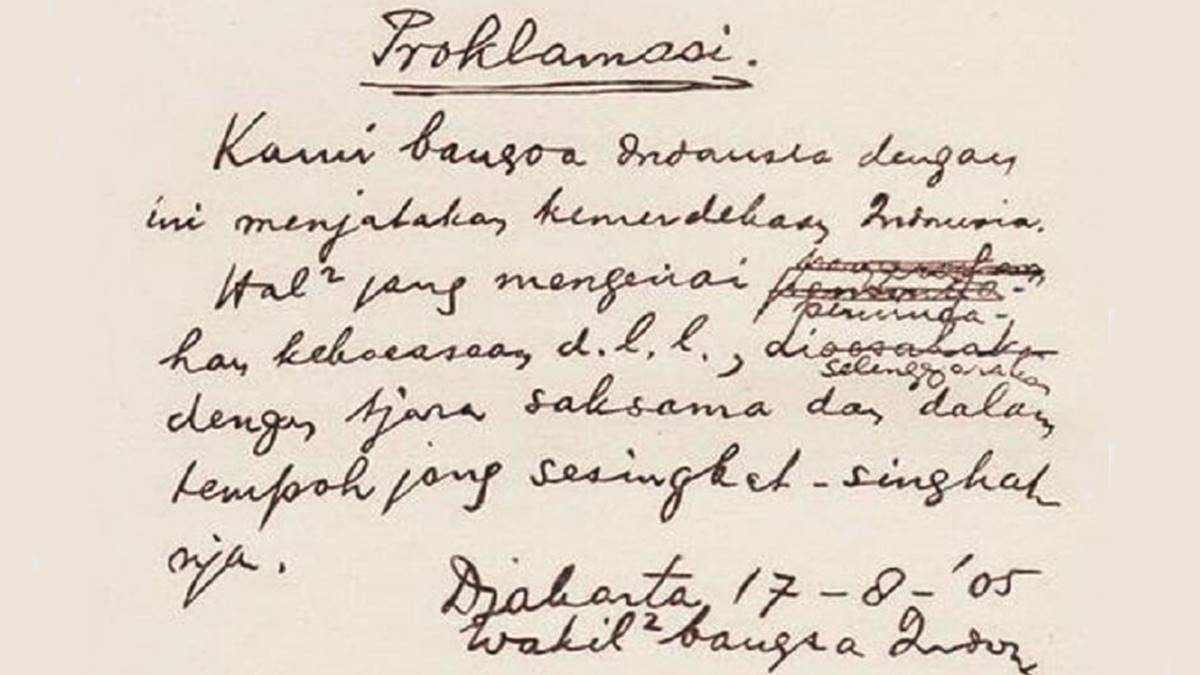 Proklamasi.
Kami bangsa Indonesia dengan
ini menjatakan kemerdekaan Indonesia.
Hal² jang mengenai peminda-
han kekoeasaan d.l.l., diselenggarakan
dengan tjara saksama dan dalam
tempoh jang sesingkat-singkat
nja.
Djakarta, 17-8-'05
Wakil² bangsa Indon